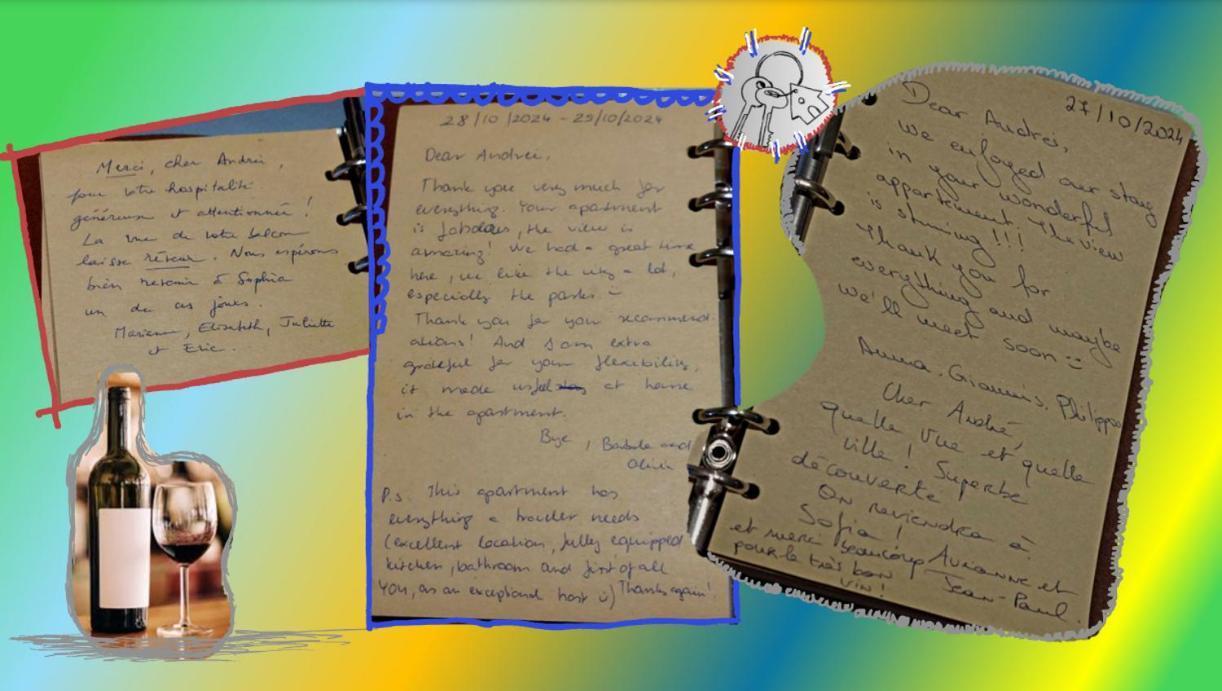 Merci, cher Andrei,
pour votre hospitalité
généreuse et attentionnée !
La vue de votre balcon
laisse rêveur. Nous espérons
bien revenir à Sophia
un de ces jours.
Marianne, Elisabeth, Juliette
et Eric.
28/10/2024 - 29/10/2024
Dear Andrei,
Thank you very much for
everything. Your apartment
is fabulous, the view is
amazing! We had a great time
here, we like the city a lot,
especially the parks :)
Thank you for your recommend
ations! And I am extra
grateful for your flexibility,
it made us feel at home
in the apartment.
Bye, and
Olivia
P.s. This apartment has
everything a traveler needs
(excellent location, fully equipped
kitchen, bathroom and first of all
YOU, as an exceptional host :) Thanks again!
27/10/2024
Dear Andrei,
We enjoyed our stay
in your wonderful
appartement. The view
is stunning!!!
Thank you for
everything and maybe
we'll meet soon :)
Anna, Giannis, Philippos
Cher André,
quelle vue et quelle
ville ! Superbe
découverte
On reviendra à
Sofia !
et merci beaucoup
pour le très bon
vin !
et
Jean-Paul